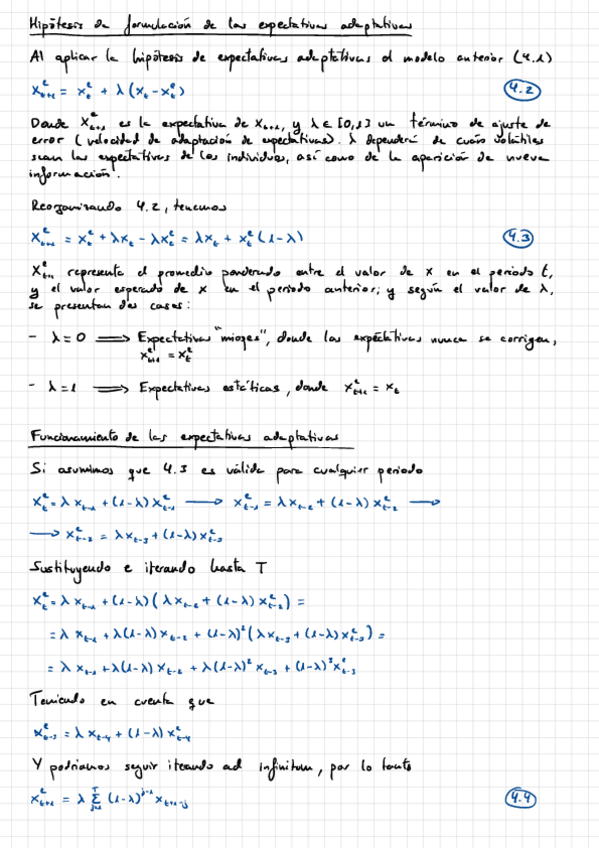 Hipótesis de formulación de las expectativas adaptativas
Al aplicar la hipótesis de expectativas adaptativas al modelo anterior (4.1)
xᵉₜ₊₁ = xᵉₜ + λ(xₜ - xᵉₜ) 4.2
Donde xᵉₜ₊₁ es la expectativa de xₜ₊₁, y λ ∈ [0,1] un término de ajuste de
error (velocidad de adaptación de expectativas). λ dependerá de cuán volátiles
sean las expectativas de los individuos, así como de la aparición de nueva
información.
Reorganizando 4.2, tenemos
xᵉₜ₊₁ = xᵉₜ + λxₜ - λxᵉₜ = λxₜ + xᵉₜ(1-λ) 4.3
xᵉₜ₊₁ representa el promedio ponderado entre el valor de x en el periodo t,
y el valor esperado de x en el periodo anterior; y según el valor de λ,
se presentan dos casos:
- λ=0 ⟹ Expectativas "miopes", donde las expectativas nunca se corrigen,
xᵉₜ₊₁ = xᵉₜ
- λ=1 ⟹ Expectativas estáticas, donde xᵉₜ₊₁ = xₜ
Funcionamiento de las expectativas adaptativas
Si asumimos que 4.3 es válida para cualquier periodo
xᵉₜ = λxₜ₋₁ + (1-λ)xᵉₜ₋₁ ⟶ xᵉₜ₋₁ = λxₜ₋₂ + (1-λ)xᵉₜ₋₂ ⟶
⟶ xᵉₜ₋₂ = λxₜ₋₃ + (1-λ)xᵉₜ₋₃
Sustituyendo e iterando hasta T
xᵉₜ = λxₜ₋₁ + (1-λ)(λxₜ₋₂ + (1-λ)xᵉₜ₋₂) =
= λxₜ₋₁ + λ(1-λ)xₜ₋₂ + (1-λ)²(λxₜ₋₃ + (1-λ)xᵉₜ₋₃) =
= λxₜ₋₁ + λ(1-λ)xₜ₋₂ + λ(1-λ)²xₜ₋₃ + (1-λ)³xᵉₜ₋₃
Teniendo en cuenta que
xᵉₜ₋₃ = λxₜ₋₄ + (1-λ)xᵉₜ₋₄
Y podríamos seguir iterando ad infinitum, por lo tanto
xᵉₜ₊₁ = λ Σᵀⱼ₌₁ (1-λ)ʲ⁻¹ xₜ₊₁₋ⱼ 4.4